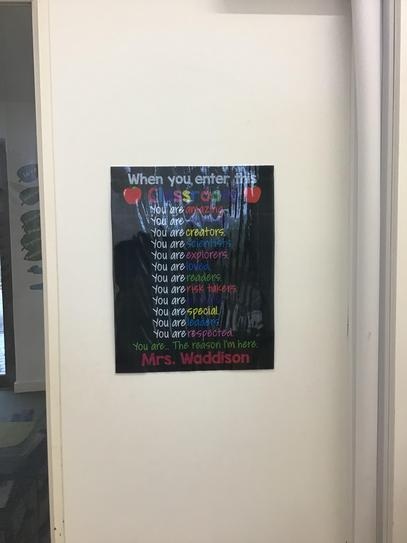 When you enter this
Classroom
You are amazing.
You are
You are creators.
You are scientists.
You are explorers.
You are loved.
You are readers.
You are risk takers.
You are
You are special.
You are leaders.
You are respected.
You are... The reason I'm here.
Mrs. Waddison